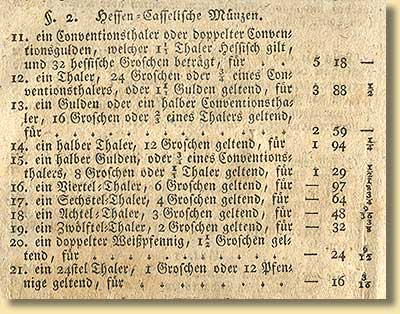 §. 2. Hessen-Casselische Münzen.
11. ein Conventionsthaler oder doppelter Conven-
tionsgulden, welcher Thaler Hessisch gilt,
und 32 hessische Groschen beträgt, für 5 18 —
12. ein Thaler, 24 Groschen oder ¾ eines Con-
ventionsthalers, oder 1½ Gulden geltend, für 3 88 ½
13. ein Gulden oder ein halber Conventionstha-
ler, 16 Groschen oder ⅔ eines Thalers geltend,
für 2 59 —
14. ein halber Thaler, 12 Groschen geltend, für 1 94
15. ein halber Gulden, oder eines Conventions-
thalers, 8 Groschen oder Thaler geltend, für 1 29
16. ein Viertel-Thaler, 6 Groschen geltend, für — 97
17. ein Sechstel-Thaler, 4 Groschen geltend, für — 64
18. ein Achtel-Thaler, 3 Groschen geltend, für — 48
19. ein Zwölftel-Thaler, 2 Groschen geltend, für — 32
20. ein doppelter Weißpfennig, 1½ Groschen gel-
tend, für — 24
21. ein 24stel Thaler, 1 Groschen oder 12 Pfen-
nige geltend, für — 16